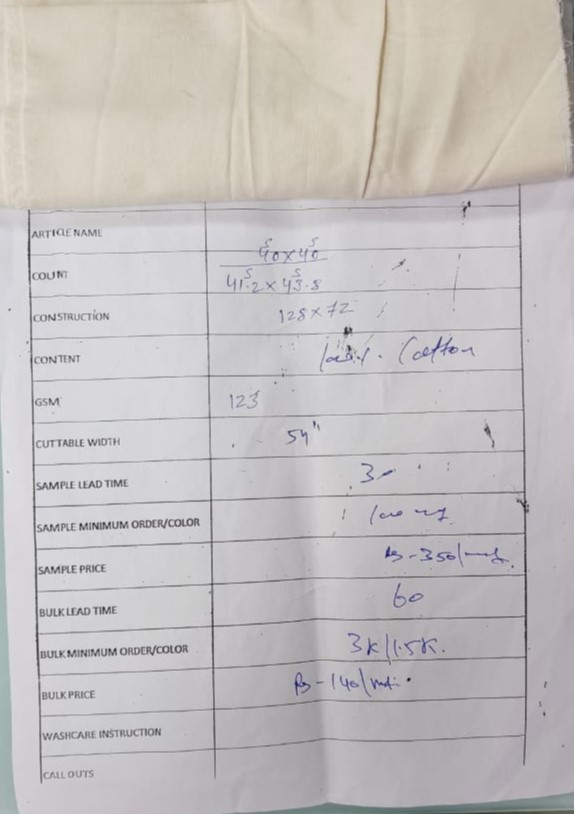 ARTICLE NAME
40s x 40s
COUNT
41.2s x 43.8s
CONSTRUCTION 128 x 72
CONTENT Cotton
GSM 123
CUTTABLE WIDTH 54"
SAMPLE LEAD TIME
SAMPLE MINIMUM ORDER/COLOR
SAMPLE PRICE Rs - 350/
BULK LEAD TIME 60
BULK MINIMUM ORDER/COLOR 3K/1.5K.
BULK PRICE Rs - 140/
WASHCARE INSTRUCTION
CALL OUTS